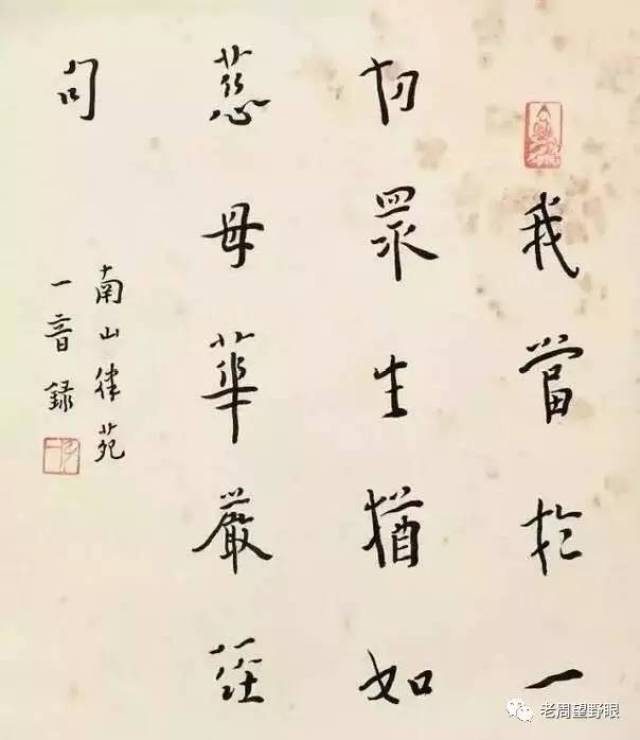 我當於一
切眾生猶如
慈母華嚴經
句
南山律苑
一音錄
老周望野眼